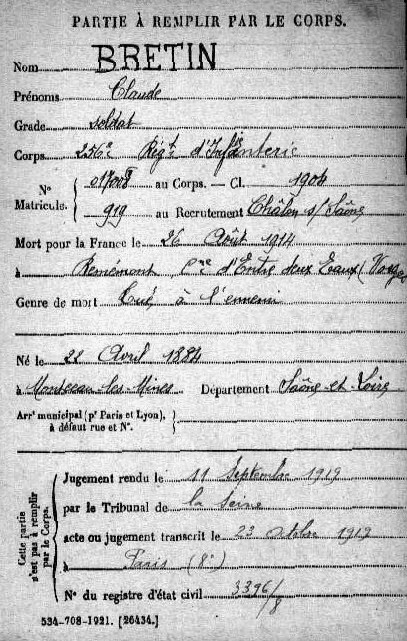 PARTIE À REMPLIR PAR LE CORPS.
Nom BRETIN
Prénoms Claude
Grade soldat
Corps 256e Régt d'Infanterie
N° Matricule. { 01708 au Corps. — Cl. 1904
919 au Recrutement Châlon s/ Saône
Mort pour la France le 26 Août 1914
à Remémont Cne d'Entre deux Eaux (Vosges
Genre de mort Tué à l'ennemi
Né le 28 Avril 1884
à Montceau-les-Mines Département Saône-et-Loire
Arrt municipal (pr Paris et Lyon), à défaut rue et N°. }
Cette partie n'est pas à remplir par le Corps. {
Jugement rendu le 11 Septembre 1919
par le Tribunal de la Seine
acte ou jugement transcrit le 23 octobre 1919
à Paris (8e)
N° du registre d'état civil 3396/8
534-708-1921. [26434.]